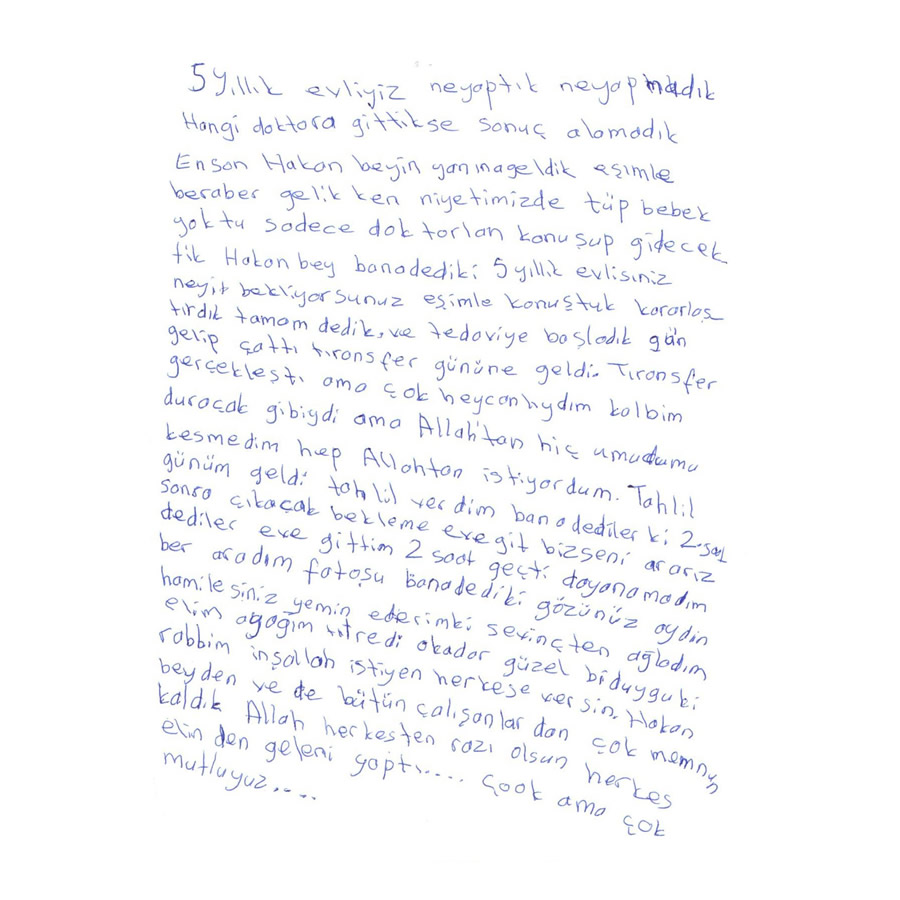 5 yıllık evliyiz neyaptık neyapmadık
Hangi doktora gittikse sonuç alamadık
Enson Hakan beyin yanınageldik eşimle
beraber gelik ken niyetimizde tüp bebek
yoktu sadece doktorlan konuşup gidecek
tik Hakan bey banadediki 5 yıllık evlisiniz
neyit bekliyorsunuz eşimle konuştuk kararlaş
tırdık tamam dedik, ve tedaviye başladık gün
gelip çattı tıransfer gününe geldi. Tıransfer
gerçekleşti ama çok heycanlıydım kalbim
duracak gibiydi ama Allah'tan hiç umudumu
kesmedim hep Allahtan istiyordum. Tahlil
günüm geldi tahlil verdim bana dediler ki 2.saat
sonra çıkacak bekleme eve git bizseni ararız
dediler eve gittim 2 saat geçti dayanamadım
ber aradım fatoşu banadediki gözünüz aydın
hamilesiniz yemin ederimki sevinçten ağladım
elim ayağım titredi okadar güzel bi duygu ki
rabbim inşallah istiyen herkese versin. Hakan
beyden ve de bütün çalışanlar dan çok memnun
kaldık Allah herkesten razı olsun herkes
elin den geleni yaptı..... çook ama çok
mutluyuz....